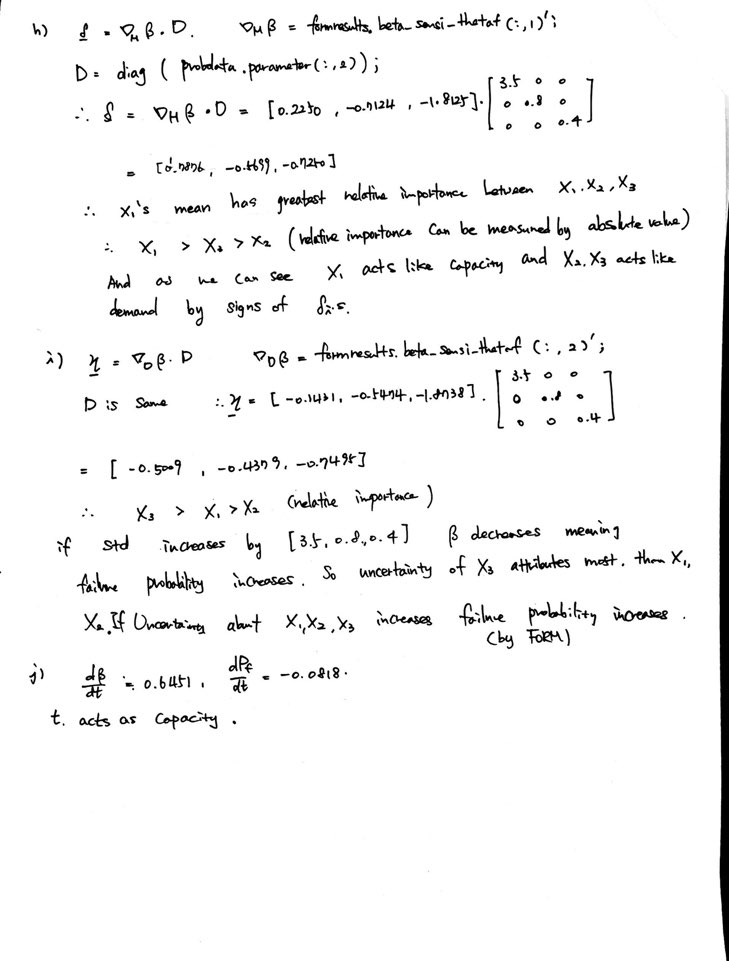 h) δ = ∇_M β · D. ∇_M β = formresults.beta_sensi_thetaf (:,1)';
D = diag ( probdata.parameter(:,2));
∴ δ = ∇_M β · D = [0.2250 , -0.7124 , -1.8125] · [3.5 0 0
0 0.8 0
0 0 0.4]
= [0.7876, -0.5699, -0.7250]
∴ X₁'s mean has greatest relative importance between X₁. X₂, X₃
∴ X₁ > X₃ > X₂ (relative importance can be measured by absolute value)
And as we can see X₁ acts like capacity and X₂. X₃ acts like
demand by signs of δᵢ.s.
i) η = ∇_D β · D ∇_D β = formresults.beta_sensi_thetaf (:, 2)';
D is same ∴ η = [ -0.1431, -0.5474, -1.8738] · [3.5 0 0
0 0.8 0
0 0 0.4]
= [ -0.5009 , -0.4379, -0.7495]
∴ X₃ > X₁ > X₂ (relative importance)
if std increases by [3.5, 0.8, 0.4] β decreases meaning
failure probability increases. So uncertainty of X₃ attributes most. then X₁,
X₂. If Uncertainty about X₁, X₂, X₃ increases failure probability increases.
(by FORM)
j) dβ/dt = 0.6451, dP_f/dt = -0.0818.
t. acts as capacity.